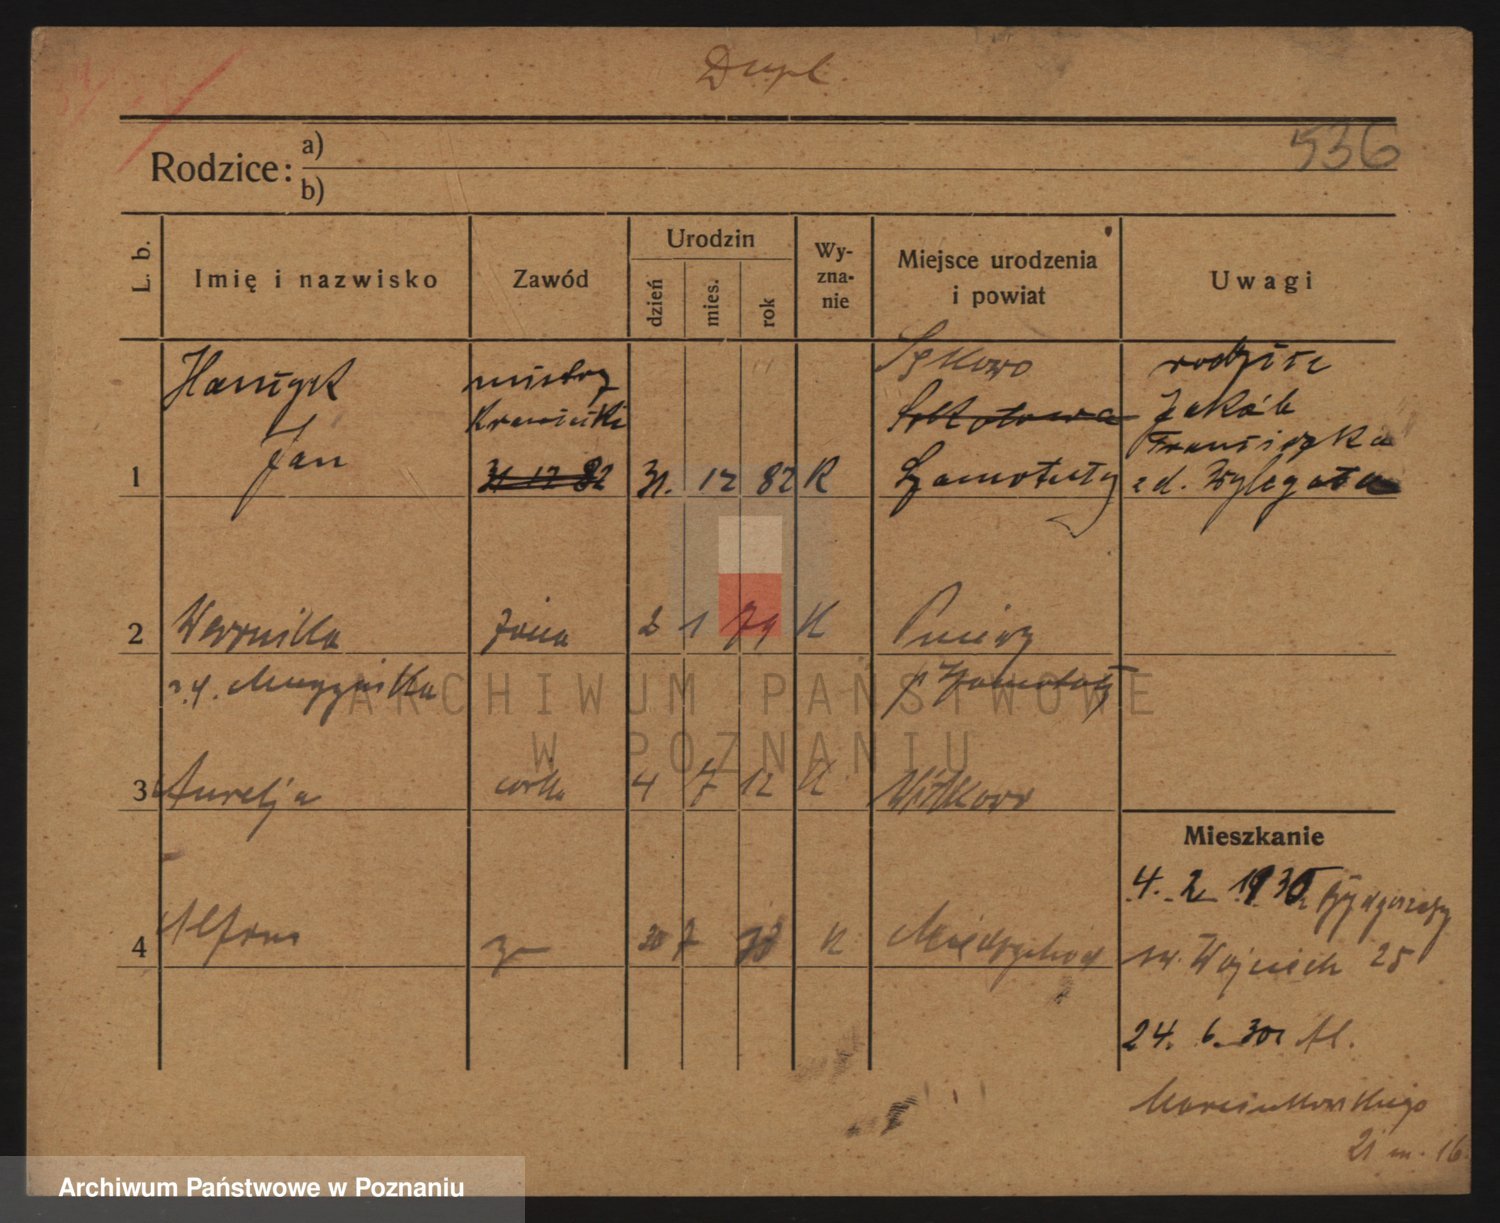 Dupl.
536
Rodzice: a)
b)
L. b.
Imię i nazwisko
Zawód
Urodzin
dzień
mies.
rok
Wy-
zna-
nie
Miejsce urodzenia
i powiat
Uwagi
1
Jan
mistrz
krawiecki
31 12 82
31. 12 82 K
Szamotuły
rodzice
Jakób
Franciszka
z d.
2
Weronika
żona
2 1 79 K
Pniewy
p. Szamotuły
3
Aurelja
córka
4 7 12 K
Witkowo
4
Alfons
30 7
K
Międzychód
Mieszkanie
4. 2. 1930 Bydgoszcz
św. Wojciech 25
24. 6. 30 Al.
Marcinkowskiego
21 m. 16
ARCHIWUM PAŃSTWOWE
W POZNANIU
Archiwum Państwowe w Poznaniu